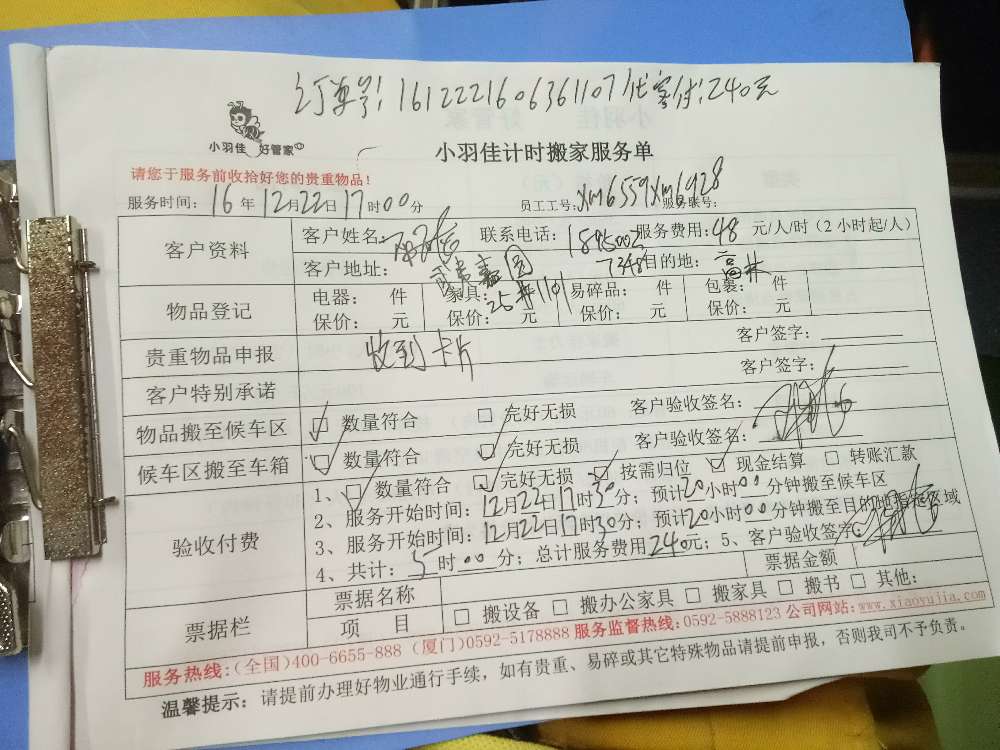 订单号:1612221606361107代客付:240元
小羽佳 好管家
小羽佳计时搬家服务单
请您于服务前收拾好您的贵重物品!
服务时间:16年12月22日17时00分 员工工号:xm6559xm6928 服务账号:
客户资料 客户姓名: 联系电话: 服务费用:48元/人/时(2小时起/人)
客户地址: 25井1101 7348 目的地:高林
物品登记 电器: 件 家具: 易碎品: 件 包裹: 件
保价: 元 保价: 元 保价: 元 保价: 元
贵重物品申报 收到卡片 客户签字:
客户特别承诺 客户签字:
物品搬至候车区 ☑数量符合 □完好无损 客户验收签名:
候车区搬至车箱 ☑数量符合 ☑完好无损 客户验收签名:
验收付费 1、☑数量符合 ☑完好无损 ☑按需归位 ☑现金结算 □转账汇款
2、服务开始时间:12月22日17时30分;预计20小时00分钟搬至候车区
3、服务开始时间:12月22日17时30分;预计20小时00分钟搬至目的地指定区域
4、共计:5时00分;总计服务费用240元;5、客户验收签字:
票据栏 票据名称 票据金额
项 目 □搬设备 □搬办公家具 □搬家具 □搬书 □其他:
服务热线:(全国)400-6655-888 (厦门)0592-5178888 服务监督热线:0592-5888123 公司网站:www.xiaoyujia.com
温馨提示:请提前办理好物业通行手续,如有贵重、易碎或其它特殊物品请提前申报,否则我司不予负责。